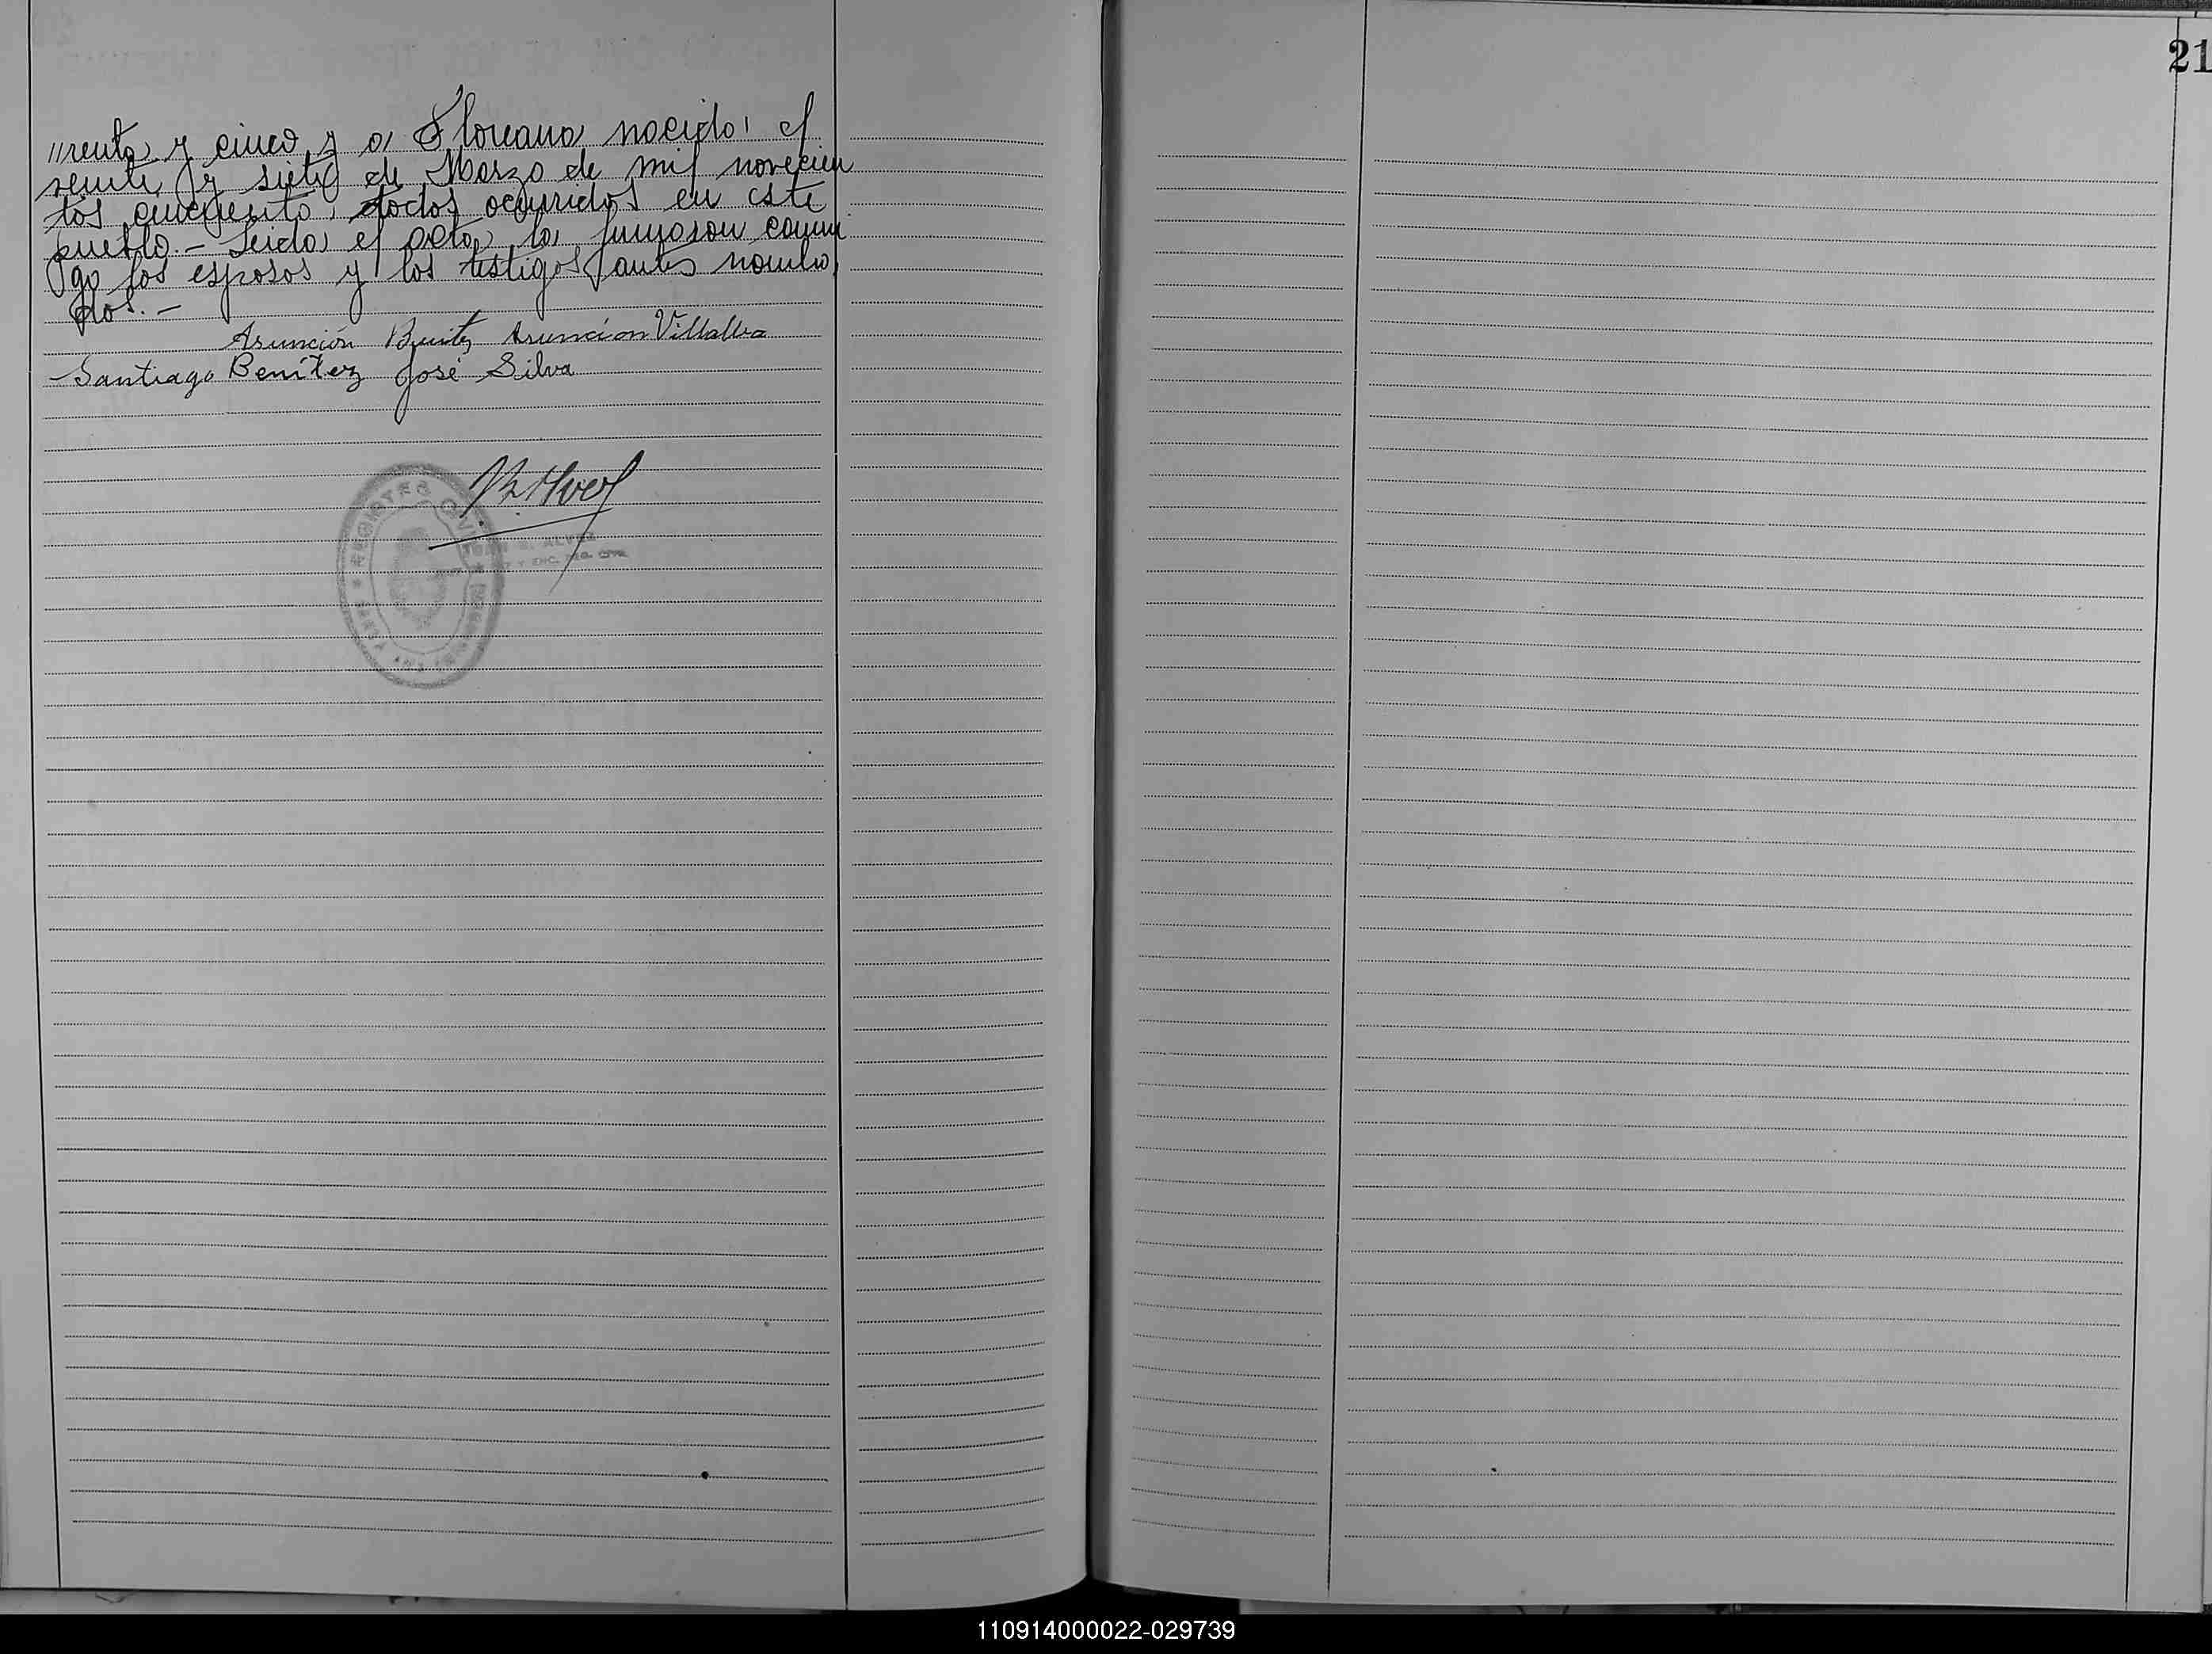 renta y cinco y a Floreana nacida el
veinte y siete de Marzo de mil novecien
tos cincuenta, todos ocurridos en este
pueblo.- Leida el acta la firmaron conmi
go los esposos y los testigos antes nombra
dos.-
Asunción Benitez Asuncion Villalba
Santiago Benítez José Silva
REGISTRO CIVIL
ALVEZ
Y ENC. REG. CIVIL
21
110914000022-029739